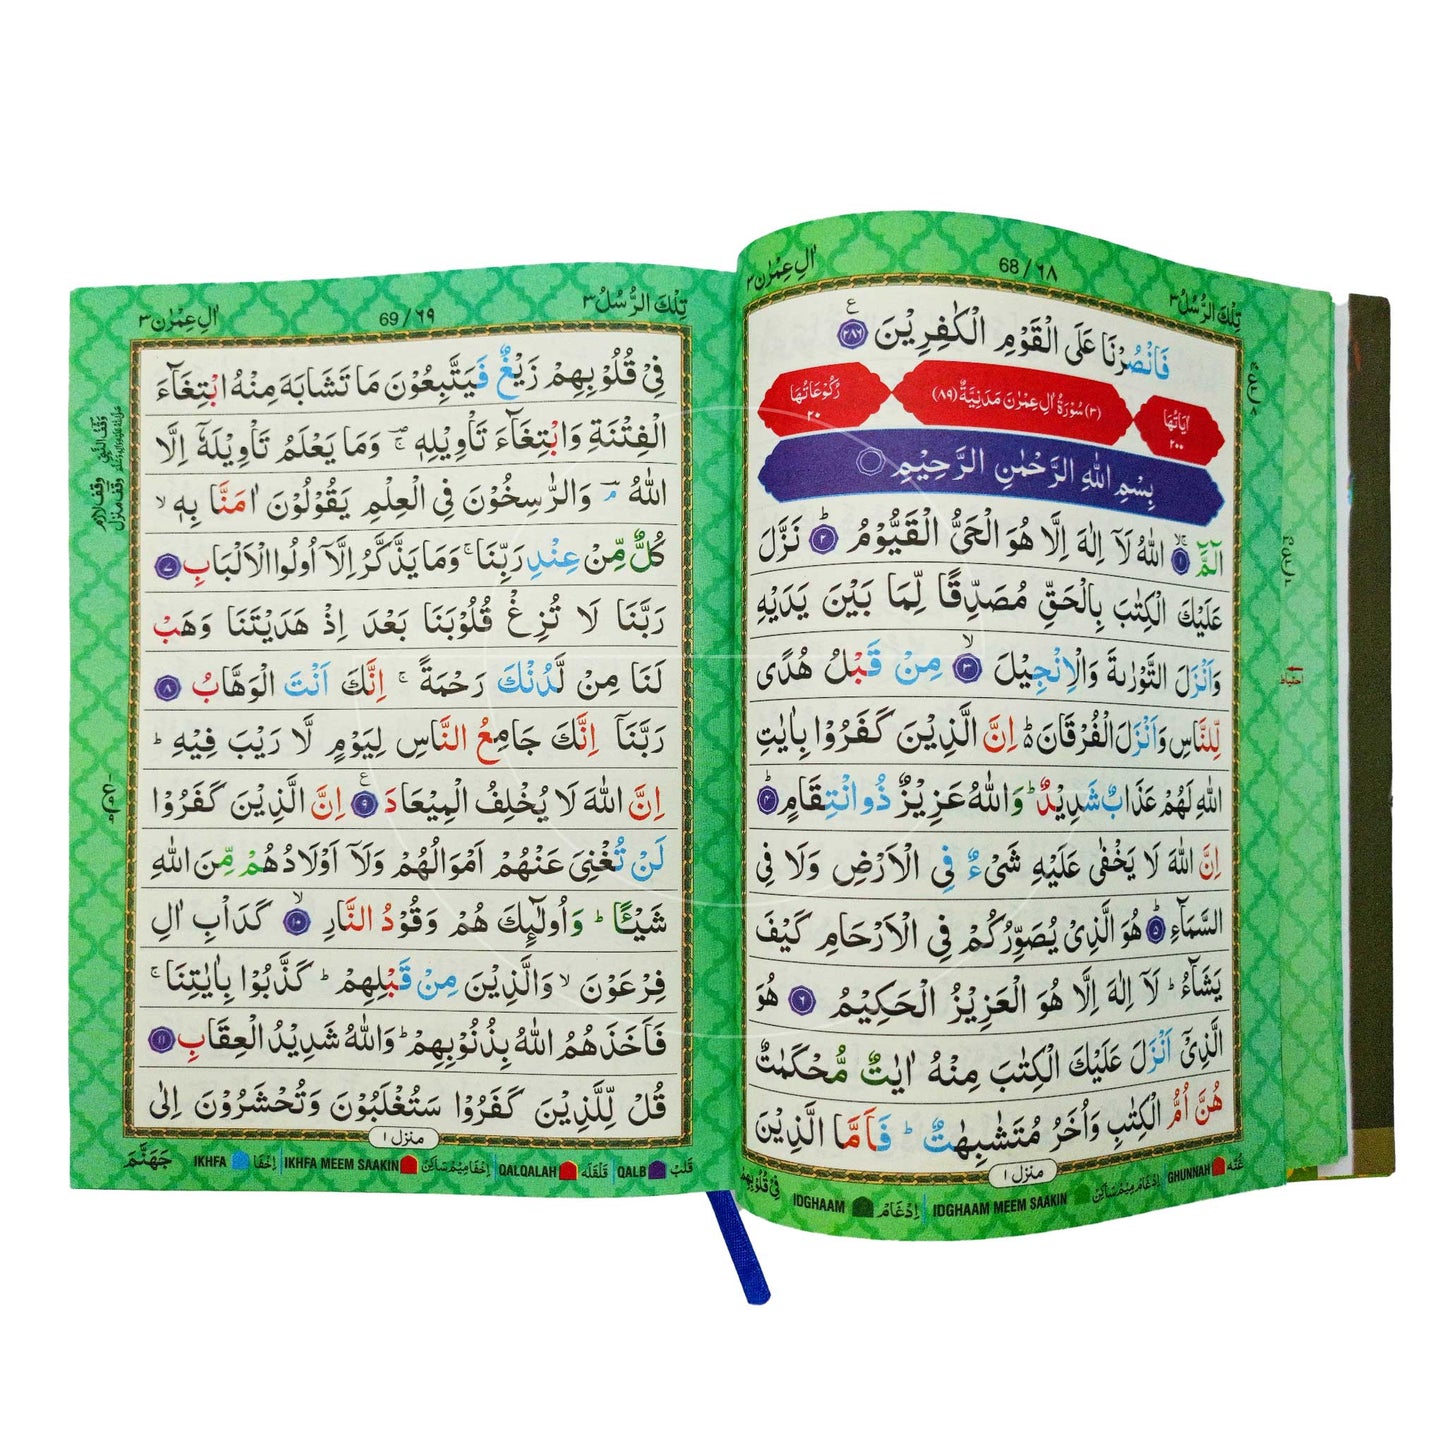 تِلْكَ الرُّسُلُ ٣
68 / ٦٨
اٰلِ عِمْرٰن ٣
فَانْصُرْنَا عَلَى الْقَوْمِ الْكٰفِرِيْنَ ۝٢٨٦ ع
اٰيَاتُهَا ٢٠٠
(٣) سُوْرَةُ اٰلِ عِمْرٰنَ مَدَنِيَّةٌ (٨٩)
رُكُوْعَاتُهَا ٢٠
بِسْمِ اللّٰهِ الرَّحْمٰنِ الرَّحِيْمِ
الٓمّٓ ۝١ۙ اللّٰهُ لَاۤ اِلٰهَ اِلَّا هُوَ الْحَيُّ الْقَيُّوْمُ ۝٢ؕ نَزَّلَ
عَلَيْكَ الْكِتٰبَ بِالْحَقِّ مُصَدِّقًا لِّمَا بَيْنَ يَدَيْهِ
وَاَنْزَلَ التَّوْرٰىةَ وَالْاِنْجِيْلَ ۝٣ۙ مِنْ قَبْلُ هُدًى
لِّلنَّاسِ وَاَنْزَلَ الْفُرْقَانَ ؕ۬ اِنَّ الَّذِيْنَ كَفَرُوْا بِاٰيٰتِ
اللّٰهِ لَهُمْ عَذَابٌ شَدِيْدٌ ؕ وَاللّٰهُ عَزِيْزٌ ذُو انْتِقَامٍ ۝٤ؕ
اِنَّ اللّٰهَ لَا يَخْفٰى عَلَيْهِ شَيْءٌ فِي الْاَرْضِ وَلَا فِي
السَّمَآءِ ۝٥ؕ هُوَ الَّذِيْ يُصَوِّرُكُمْ فِي الْاَرْحَامِ كَيْفَ
يَشَآءُ ؕ لَاۤ اِلٰهَ اِلَّا هُوَ الْعَزِيْزُ الْحَكِيْمُ ۝٦ هُوَ
الَّذِيْۤ اَنْزَلَ عَلَيْكَ الْكِتٰبَ مِنْهُ اٰيٰتٌ مُّحْكَمٰتٌ
هُنَّ اُمُّ الْكِتٰبِ وَاُخَرُ مُتَشٰبِهٰتٌ ؕ فَاَمَّا الَّذِيْنَ
منزل ١
غُنَّه GHUNNAH
اِدْغَام مِيْم سَاكِنْ IDGHAAM MEEM SAAKIN
اِدْغَامْ IDGHAAM
فِيْ قُلُوْبِهِمْ
تِلْكَ الرُّسُلُ ٣
69 / ٦٩
اٰلِ عِمْرٰن ٣
فِيْ قُلُوْبِهِمْ زَيْغٌ فَيَتَّبِعُوْنَ مَا تَشَابَهَ مِنْهُ ابْتِغَآءَ
الْفِتْنَةِ وَابْتِغَآءَ تَاْوِيْلِهٖ ۚ وَمَا يَعْلَمُ تَاْوِيْلَهٗۤ اِلَّا
اللّٰهُ ۘ وَالرّٰسِخُوْنَ فِي الْعِلْمِ يَقُوْلُوْنَ اٰمَنَّا بِهٖ ۙ
كُلٌّ مِّنْ عِنْدِ رَبِّنَا ۚ وَمَا يَذَّكَّرُ اِلَّاۤ اُولُوا الْاَلْبَابِ ۝٧
رَبَّنَا لَا تُزِغْ قُلُوْبَنَا بَعْدَ اِذْ هَدَيْتَنَا وَهَبْ
لَنَا مِنْ لَّدُنْكَ رَحْمَةً ۚ اِنَّكَ اَنْتَ الْوَهَّابُ ۝٨
رَبَّنَاۤ اِنَّكَ جَامِعُ النَّاسِ لِيَوْمٍ لَّا رَيْبَ فِيْهِ ؕ
اِنَّ اللّٰهَ لَا يُخْلِفُ الْمِيْعَادَ ۝٩ ع اِنَّ الَّذِيْنَ كَفَرُوْا
لَنْ تُغْنِيَ عَنْهُمْ اَمْوَالُهُمْ وَلَاۤ اَوْلَادُهُمْ مِّنَ اللّٰهِ
شَيْـًٔا ؕ وَاُولٰٓئِكَ هُمْ وَقُوْدُ النَّارِ ۝١٠ۙ كَدَاْبِ اٰلِ
فِرْعَوْنَ ۙ وَالَّذِيْنَ مِنْ قَبْلِهِمْ ؕ كَذَّبُوْا بِاٰيٰتِنَا ۚ
فَاَخَذَهُمُ اللّٰهُ بِذُنُوْبِهِمْ ؕ وَاللّٰهُ شَدِيْدُ الْعِقَابِ ۝١١
قُلْ لِّلَّذِيْنَ كَفَرُوْا سَتُغْلَبُوْنَ وَتُحْشَرُوْنَ اِلٰى
منزل ١
قَلْب QALB
قَلْقَلَه QALQALAH
اِخْفَا مِيْم سَاكِنْ IKHFA MEEM SAAKIN
اِخْفَا IKHFA
جَهَنَّمَ
وقف لازم
وقف منزل